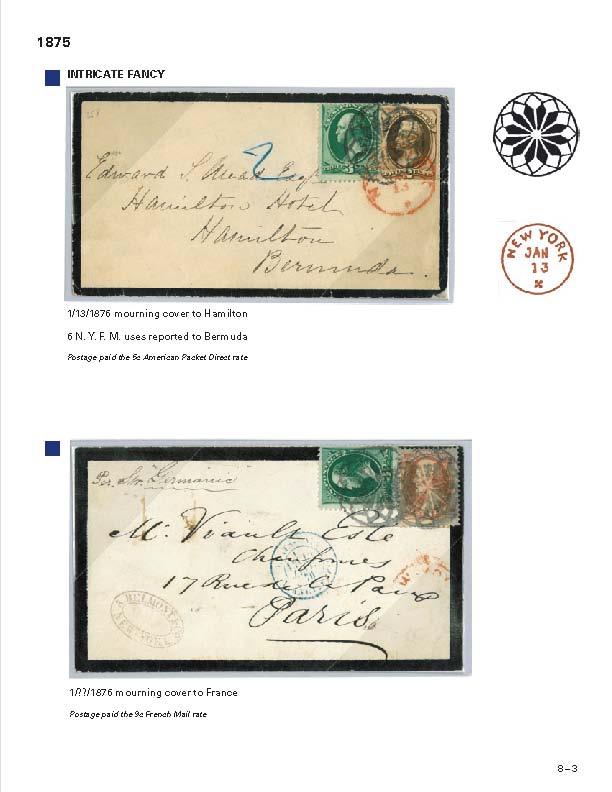 1875
INTRICATE FANCY
2
Edward S.
Hamilton Hotel
Hamilton
Bermuda.
NEW YORK
JAN
13
1/13/1876 mourning cover to Hamilton
6 N. Y. F. M. uses reported to Bermuda
Postage paid the 5c American Packet Direct rate
Per Str. Germanic
17 Rue de la Paix
Paris
NEW-YORK
1/??/1876 mourning cover to France
Postage paid the 9c French Mail rate
8–3